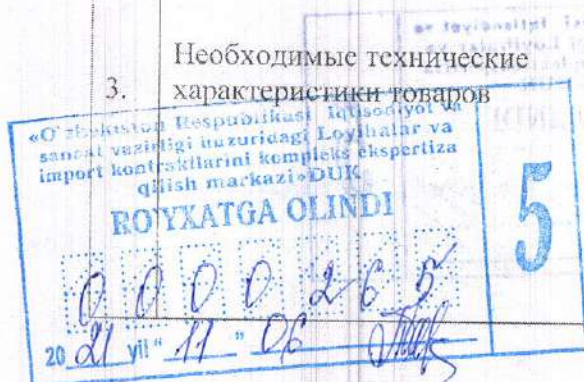 Необходимые технические
3. характеристики товаров
«O'zbekiston Respublikasi Iqtisodiyot va
sanoat vazirligi huzuridagi Loyihalar va
import kontraktlarini kompleks ekspertiza
qilish markazi»DUK
RO'YXATGA OLINDI
5
0 0 0 0 2 6 5
20 21 yil " 11 " 06